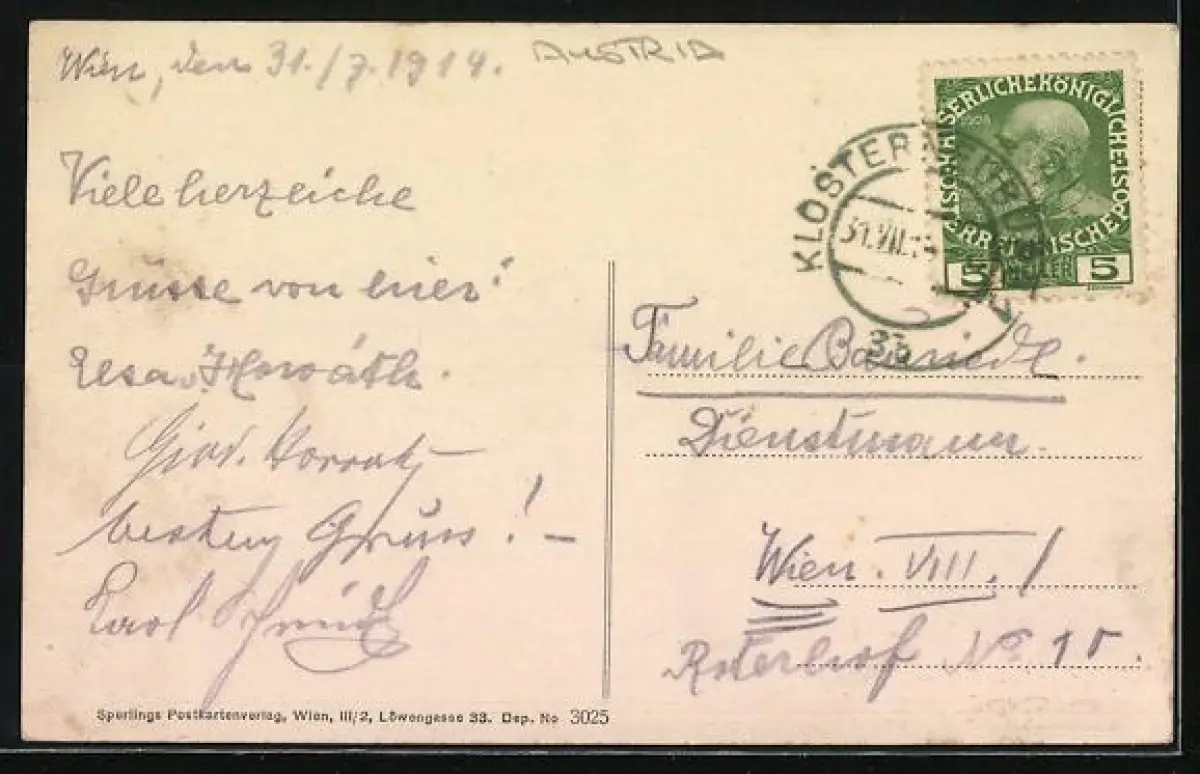 Wien, den 31./7.1914.
AUSTRIA
Viele herzliche
Grüsse von hier
Elsa Horváth.
besten Gruss! –
Karl
KAISERLICHEKÖNIGLICHE
1908
POST
5 HELLER 5
KLOSTERNEUBURG
31.VII.
3b
Familie
Dienstmann.
Wien. VIII./
Roterhof No
Sperlings Postkartenverlag, Wien, III/2, Löwengasse 33. Dep. No 3025